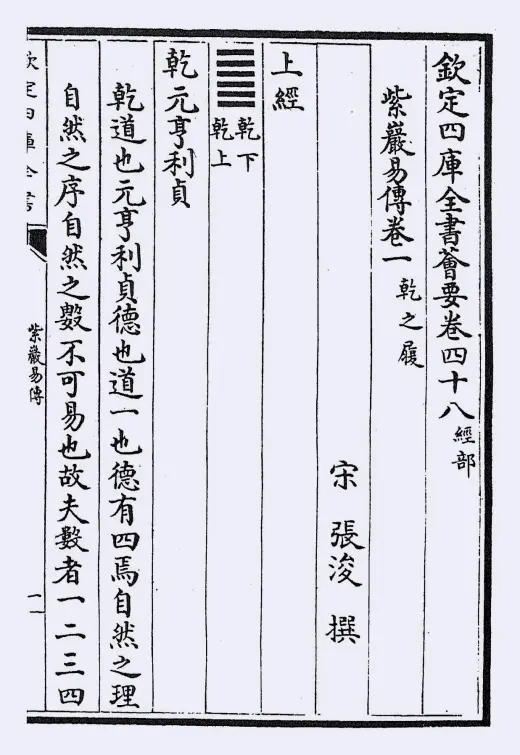 欽定四庫全書薈要卷四十八 經部
紫巖易傳卷一 乾之履
宋 張浚 撰
上經
乾下
乾上
乾元亨利貞
乾道也元亨利貞德也道一也德有四焉自然之理
自然之序自然之數不可易也故夫數者一二三四
欽定四庫全書
紫巖易傳
一